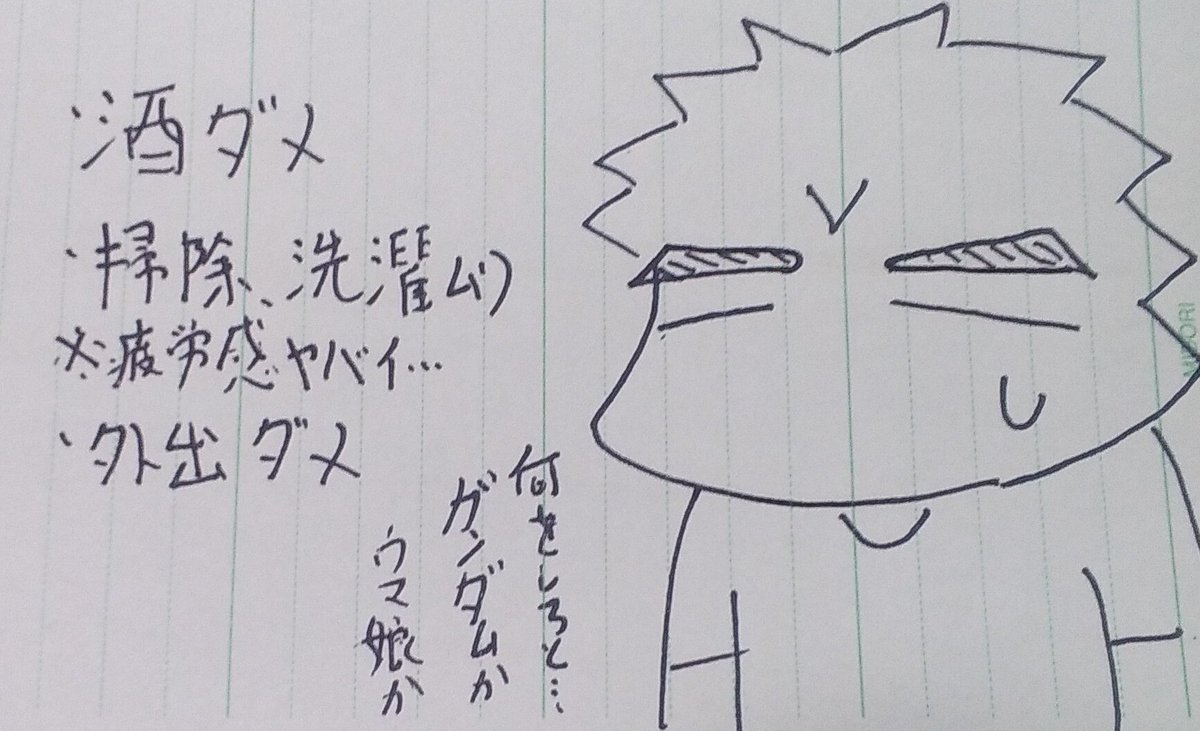 ・酒ダメ
・掃除、洗濯ムリ
※疲労感ヤバイ…
・外出ダメ
何をしろと…
ガンダムか
ウマ娘か
MIDORI